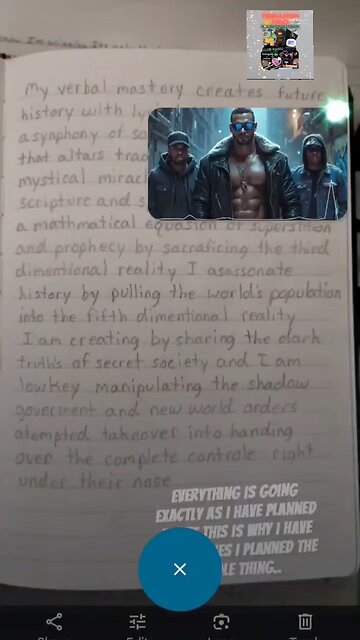 now I'm winning Its only
my verbal mastory creates future
history with
a symphony of
that altars
mystical
scripture and
a mathmatical equasion of superstition
and prophecy by sacraficing the third
dimentional reality I asassonate
history by pulling the world's population
into the fifth dimentional reality
I am creating by sharing the dark
truths of secret society and I am
lowkey manipulating the shadow
goverment and new world orders
atempted takeover into handing
over the complete controle right
under their nose
EVERYTHING IS GOING
EXACTLY AS I HAVE PLANNED
THIS IS WHY I HAVE
I PLANNED THE
THING..